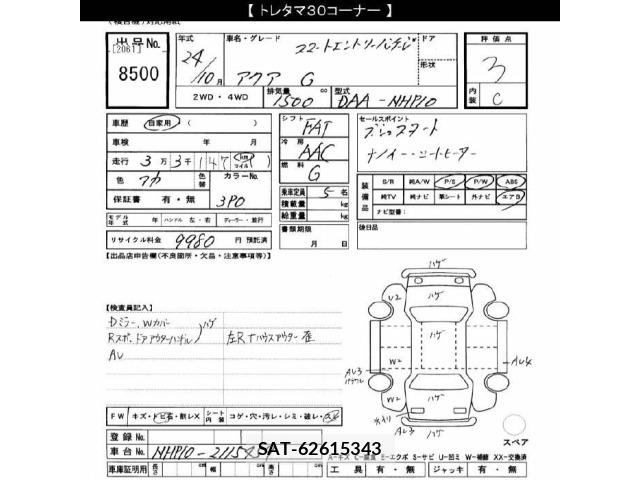 【 トレタマ30コーナー 】
出品No.
[2061]
8500
年式
24年
10月
車名・グレード
アクア G
ドア
形状
2WD・4WD
排気量
1500 cc
型式
DAA-NHP10
評価点
3
内装
C
車歴 自家用 ( )
車検 年 月
走行 3万3千147 km マイル
色 アカ 色替 カラーNo.
保証書 有・無 3P0
シフト FAT
冷房 AAC
燃料 G
乗車定員 5 名
積載量 kg
総重量 kg
セールスポイント
プッシュスタート
ナノイー・シートヒーター
装備品 S/R 純A/W P/S P/W ABS
純TV 純ナビ 革シート 外ナビ エアB
ナビ型番:
モデル年式 年 ハンドル 左・右 ディーラー・並行
書類期限 月 日
後日品
リサイクル料金 9980 円 預託済
【出品店申告欄(不良箇所・欠品・注意事項等)】
【検査員記入】
Dミラー、Wカバー
Rスポ、ドアアウターハンドル
ハゲ
左Rハウスアウター
AU
ハゲ
U2
ハゲ
ハゲ
W2
AU4
AU3
W2
ハゲ
AU3
スペア
FW キズ・トビ石・削レX シート内装 コゲ・穴・汚レ・シミ・破レ・スレ
登録No.
車台No. NHP10-
SAT-62615343
車庫証明用 長さ cm 幅 cm 高さ cm
A-キズ E-エクボ S-サビ U-凹ミ W-補修 XX-交換済
工具 有・無 ジャッキ 有・無